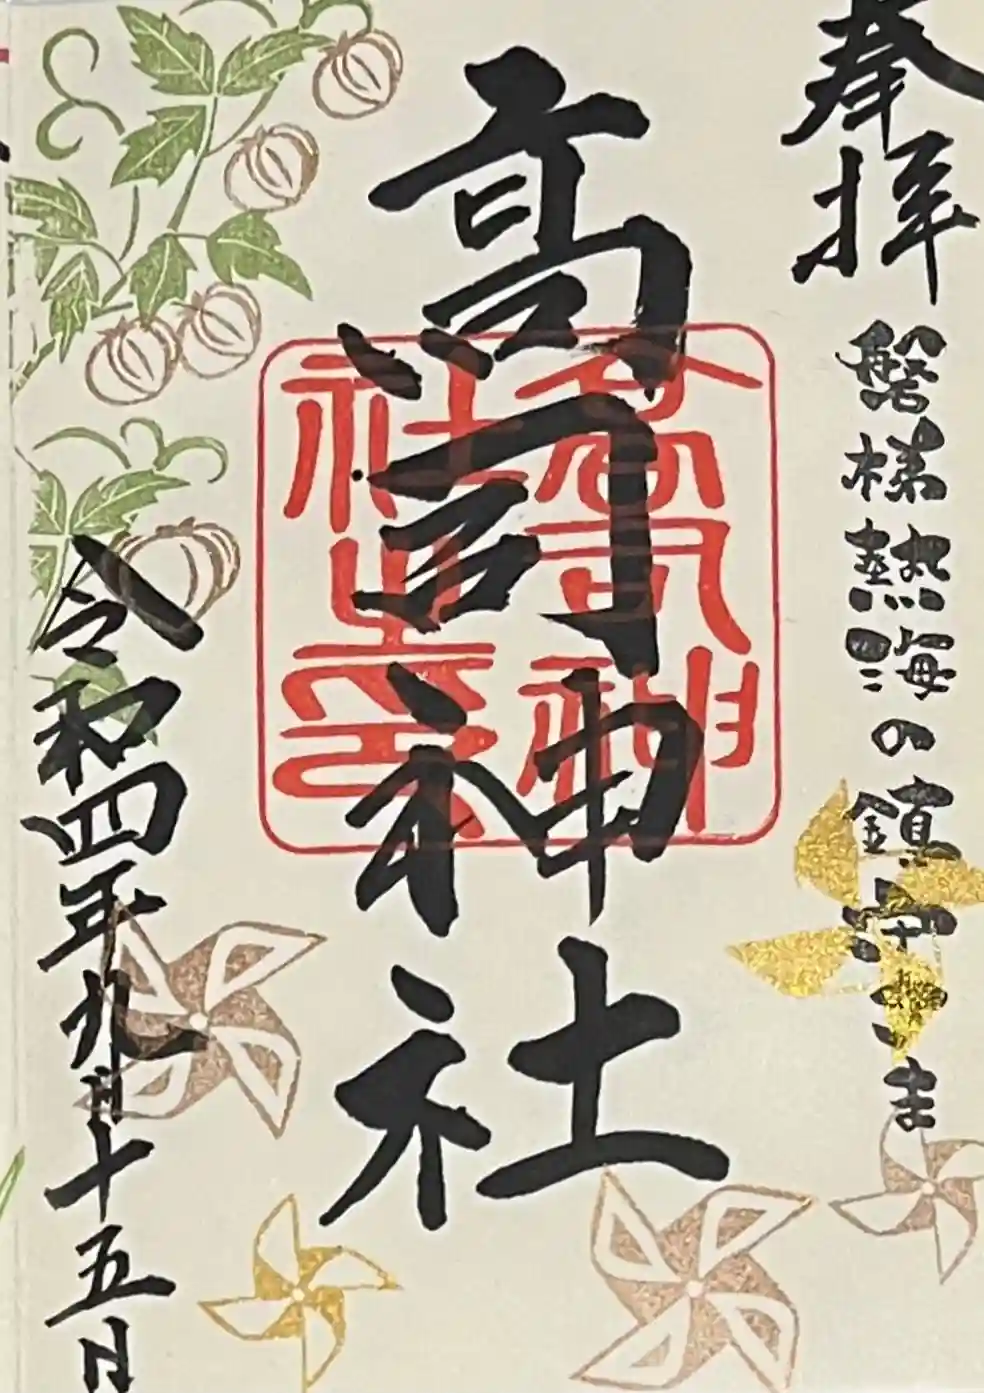 奉拝
磐梯熱海の鎮守さま
高司神社
高司神
社之印
令和四年九月十五日